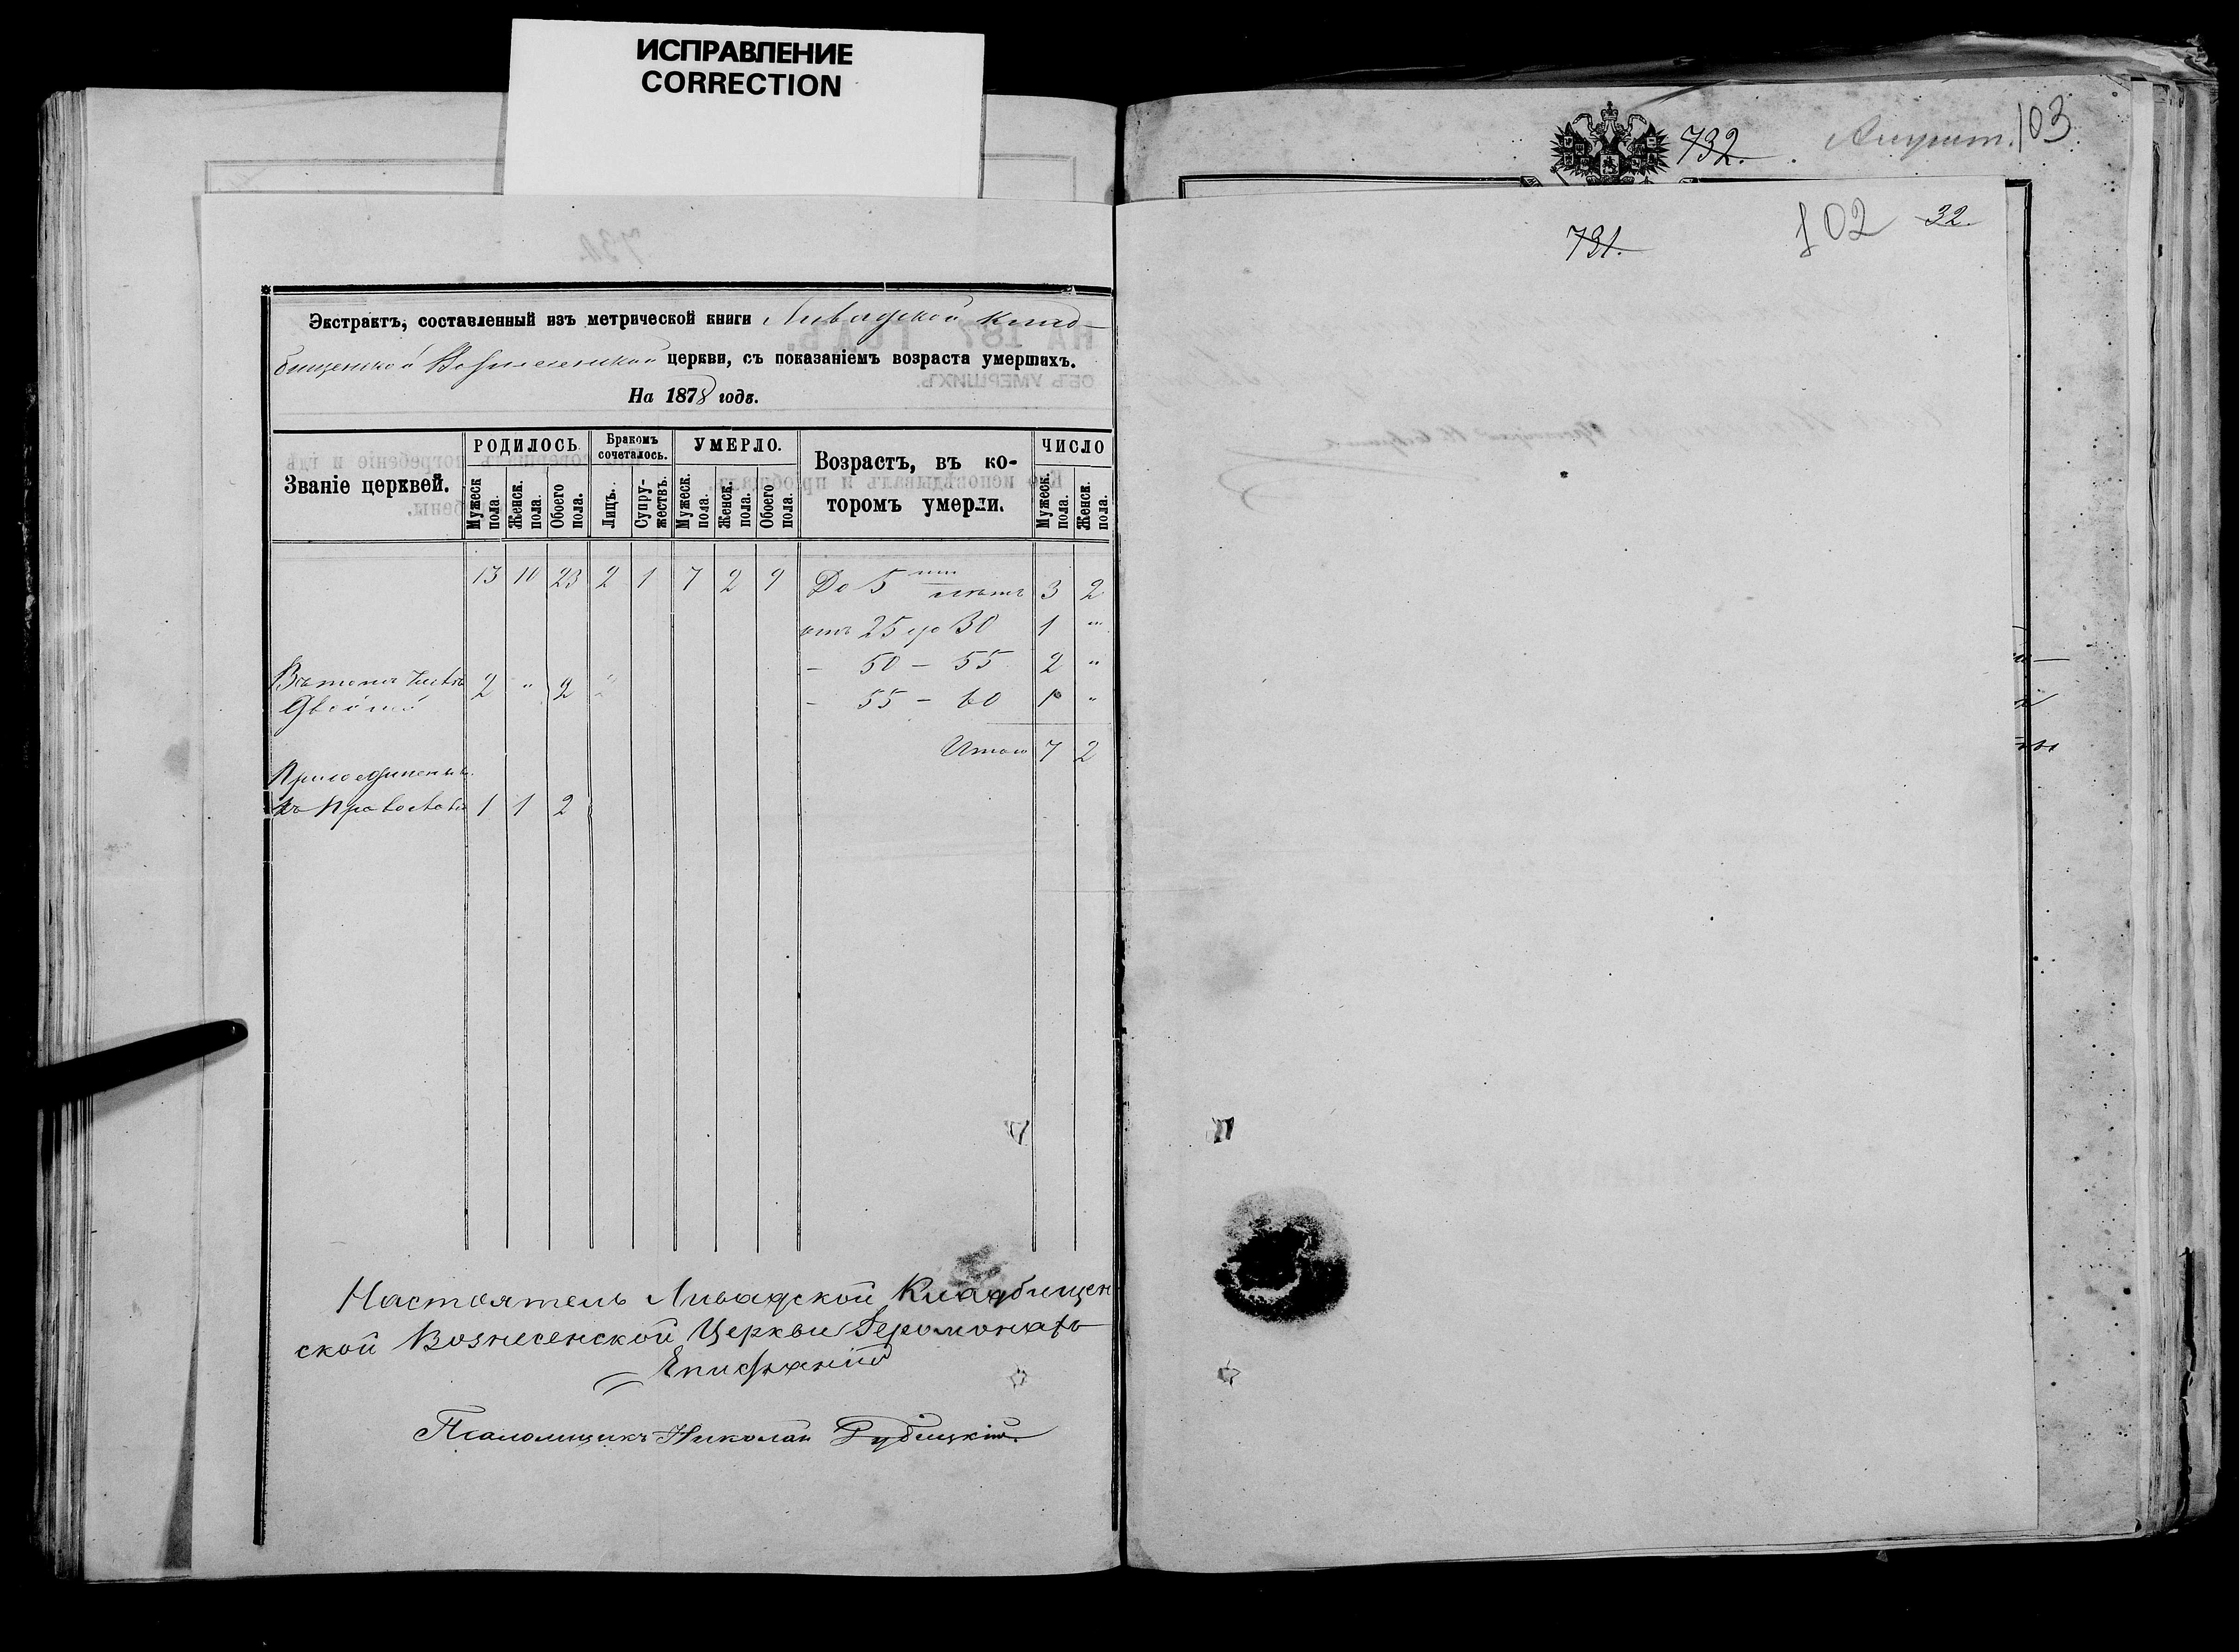 ИСПРАВЛЕНИЕ
CORRECTION
Экстрактъ, составленный изъ метрической книги Ливадской Клад-
бищенской Вознесенской церкви, съ показаніемъ возраста умершихъ.
На 1878 годъ.
Званіе церквей.
РОДИЛОСЬ
Мужеск пола.
Женск. пола.
Обоего пола.
Бракомъ сочеталось.
Лицъ.
Супружествъ.
УМЕРЛО.
Мужеск. пола.
Женск. пола.
Обоего пола.
Возрастъ, въ ко-
торомъ умерли.
ЧИСЛО
Мужеск. пола.
Женск. пола.
13 10 23 2 1 7 2 9 До 5 лѣтъ 3 2
отъ 25 до 30 1 "
- 50 - 55 2 "
Въ томъ числѣ 2 " 2
- 55 - 60 1 "
Двойни
Итого 7 2
Присоединены
къ Православію 1 1 2
Настоятель Ливадской Кладбищен
ской Вознесенской Церкви Іеромонахъ
Епифаній
Псаломщикъ Николай Рубицкій.
732.
Август. 103
731.
102
32.